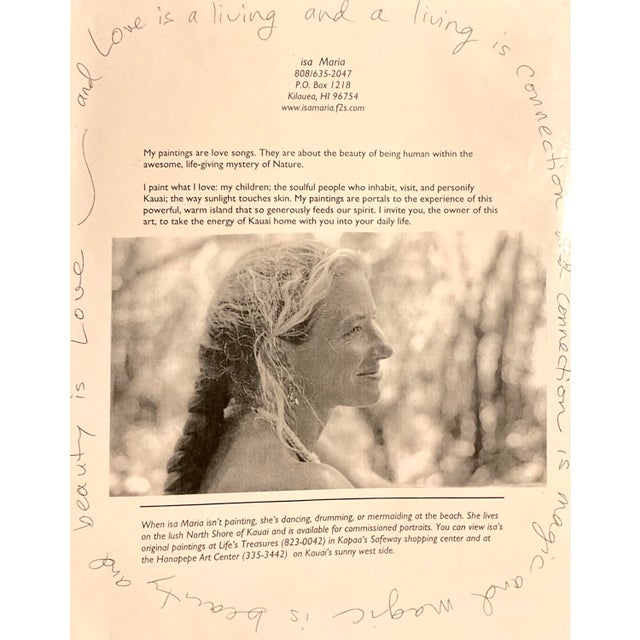 and Love is a living and a living is
connection and connection is magic and
magic is beauty and
beauty is Love
isa Maria
808/635-2047
P.O. Box 1218
Kilauea, HI 96754
www.isamaria.f2s.com
My paintings are love songs. They are about the beauty of being human within the
awesome, life-giving mystery of Nature.
I paint what I love: my children; the soulful people who inhabit, visit, and personify
Kauai; the way sunlight touches skin. My paintings are portals to the experience of this
powerful, warm island that so generously feeds our spirit. I invite you, the owner of this
art, to take the energy of Kauai home with you into your daily life.
When isa Maria isn't painting, she's dancing, drumming, or mermaiding at the beach. She lives
on the lush North Shore of Kauai and is available for commissioned portraits. You can view isa's
original paintings at Life's Treasures (823-0042) in Kapaa's Safeway shopping center and at
the Hanapepe Art Center (335-3442) on Kauai's sunny west side.